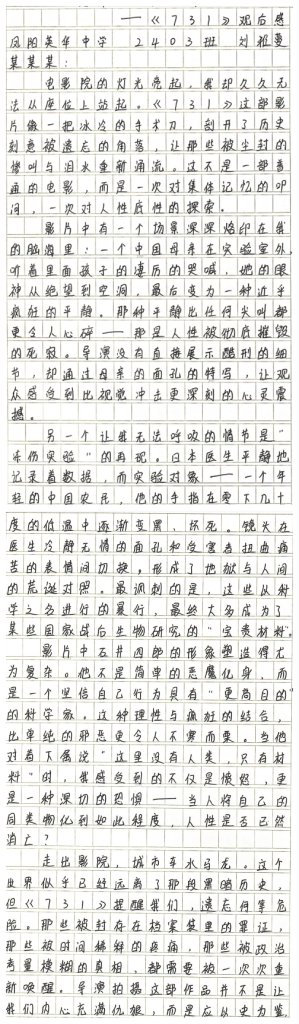 ——《731》观后感
凤阳英华中学 2403班 刘雅蔓
某某某：
电影院的灯光亮起，我却久久无
法从座位上站起。《731》这部影
片像一把冰冷的手术刀，剖开了历史
刻意被遗忘的角落，让那些被尘封的
惨叫与泪水重新涌流。这不是一部普
通的电影，而是一次对集体记忆的叩
问，一次对人性底性的探索。
影片中有一个场景深深烙印在我
的脑海里：一个中国母亲在实验室外，
听着里面孩子的凄厉的哭喊，她的眼
神从绝望到空洞，最后变为一种近乎
疯狂的平静。那种平静比任何尖叫都
更令人心碎——那是人性被彻底摧毁
的死寂。导演没有直接展示酷刑的细
节，却通过母亲的面孔的特写，让观
众感受到比视觉冲击更深刻的心灵震
撼。
另一个让我无法呼吸的情节是“
冻伤实验”的再现。日本医生平静地
记录着数据，而实验对象——一个年
轻的中国农民，他的手指在零下几十
度的低温中逐渐变黑、坏死。镜头在
医生冷静无情的面孔和受害者扭曲痛
苦的表情间切换，形成了地狱与人间
的荒诞对照。最讽刺的是，这些以科
学之名进行的暴行，最终大多成为了
某些国家战后生物研究的“宝贵材料”
影片中石井四郎的形象塑造得尤
为复杂。他不是简单的恶魔化身，而
是一个坚信自己行为具有“更高目的”
的科学家。这种理性与疯狂的结合，
比单纯的邪恶更令人不寒而栗。当他
对着下属说“这里没有人类，只有材
料”时，我感受到的不仅是愤怒，更
是一种深切的恐惧——当人将自己的
同类物化到如此程度，人性是否已然
消亡？
走出影院，城市车水马龙。这个
世界似乎已经远离了那段黑暗历史，
但《731》提醒我们，遗忘何等危
险。那些被封存在档案袋里的罪证，
那些被时间稀释的疼痛，那些被政治
考量模糊的真相，都需要被一次次重
新唤醒。导演拍摄这部作品并不是让
我们内心充满仇恨，而是应从史为鉴，